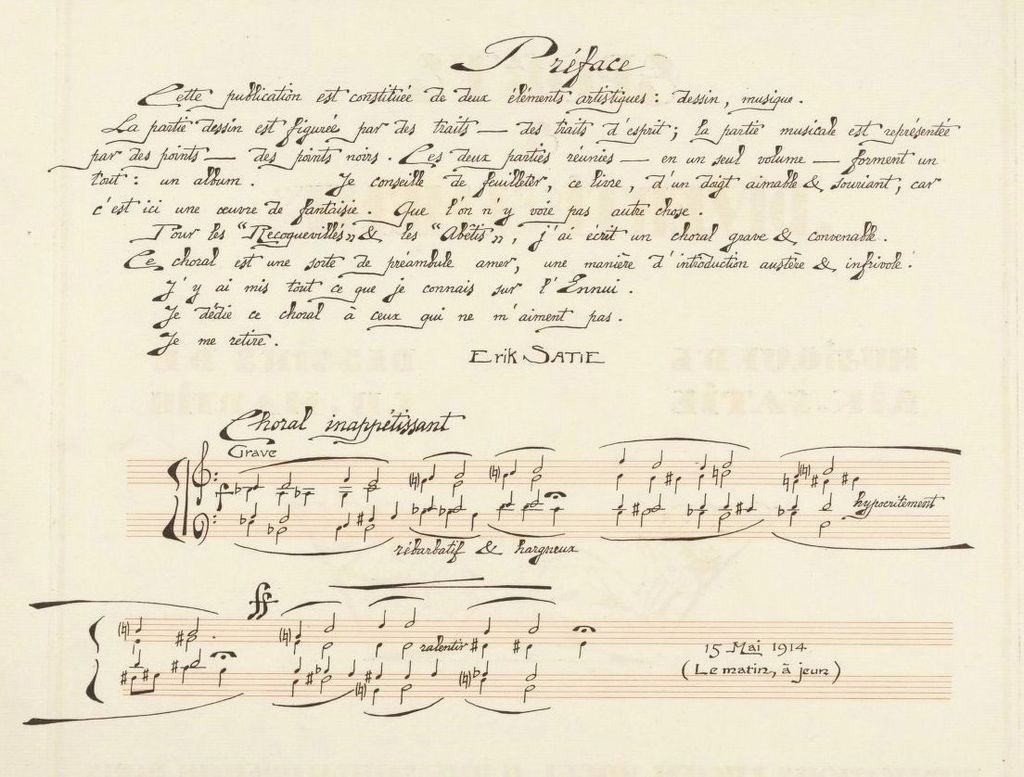 Préface
Cette publication est constituée de deux éléments artistiques : dessin, musique.
La partie dessin est figurée par des traits — des traits d'esprit ; la partie musicale est représentée
par des points — des points noirs. Ces deux parties réunies — en un seul volume — forment un
tout : un album. Je conseille de feuilleter, ce livre, d'un doigt aimable & souriant, car
c'est ici une œuvre de fantaisie. Que l'on n'y voie pas autre chose.
Pour les "Recoquevillés" & les "Abêtis", j'ai écrit un choral grave & convenable.
Ce choral est une sorte de préambule amer, une manière d'introduction austère & infrivole.
J'y ai mis tout ce que je connais sur l'Ennui.
Je dédie ce choral à ceux qui ne m'aiment pas.
Je me retire.
Erik SATIE
Choral inappétissant
Grave
f
hypocritement
rébarbatif & hargneux
ff
ralentir
15 Mai 1914
(Le matin, à jeun)